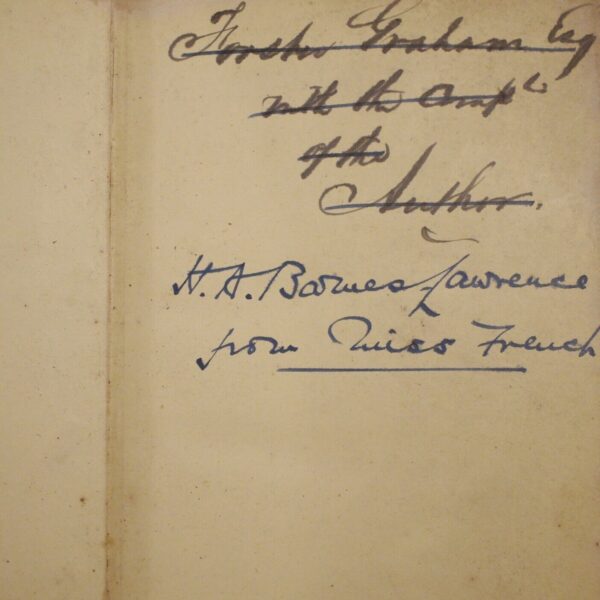 Forster Graham Esq
with the Compts
of the
Author.
H. A. Barnes-Lawrence
from Miss French